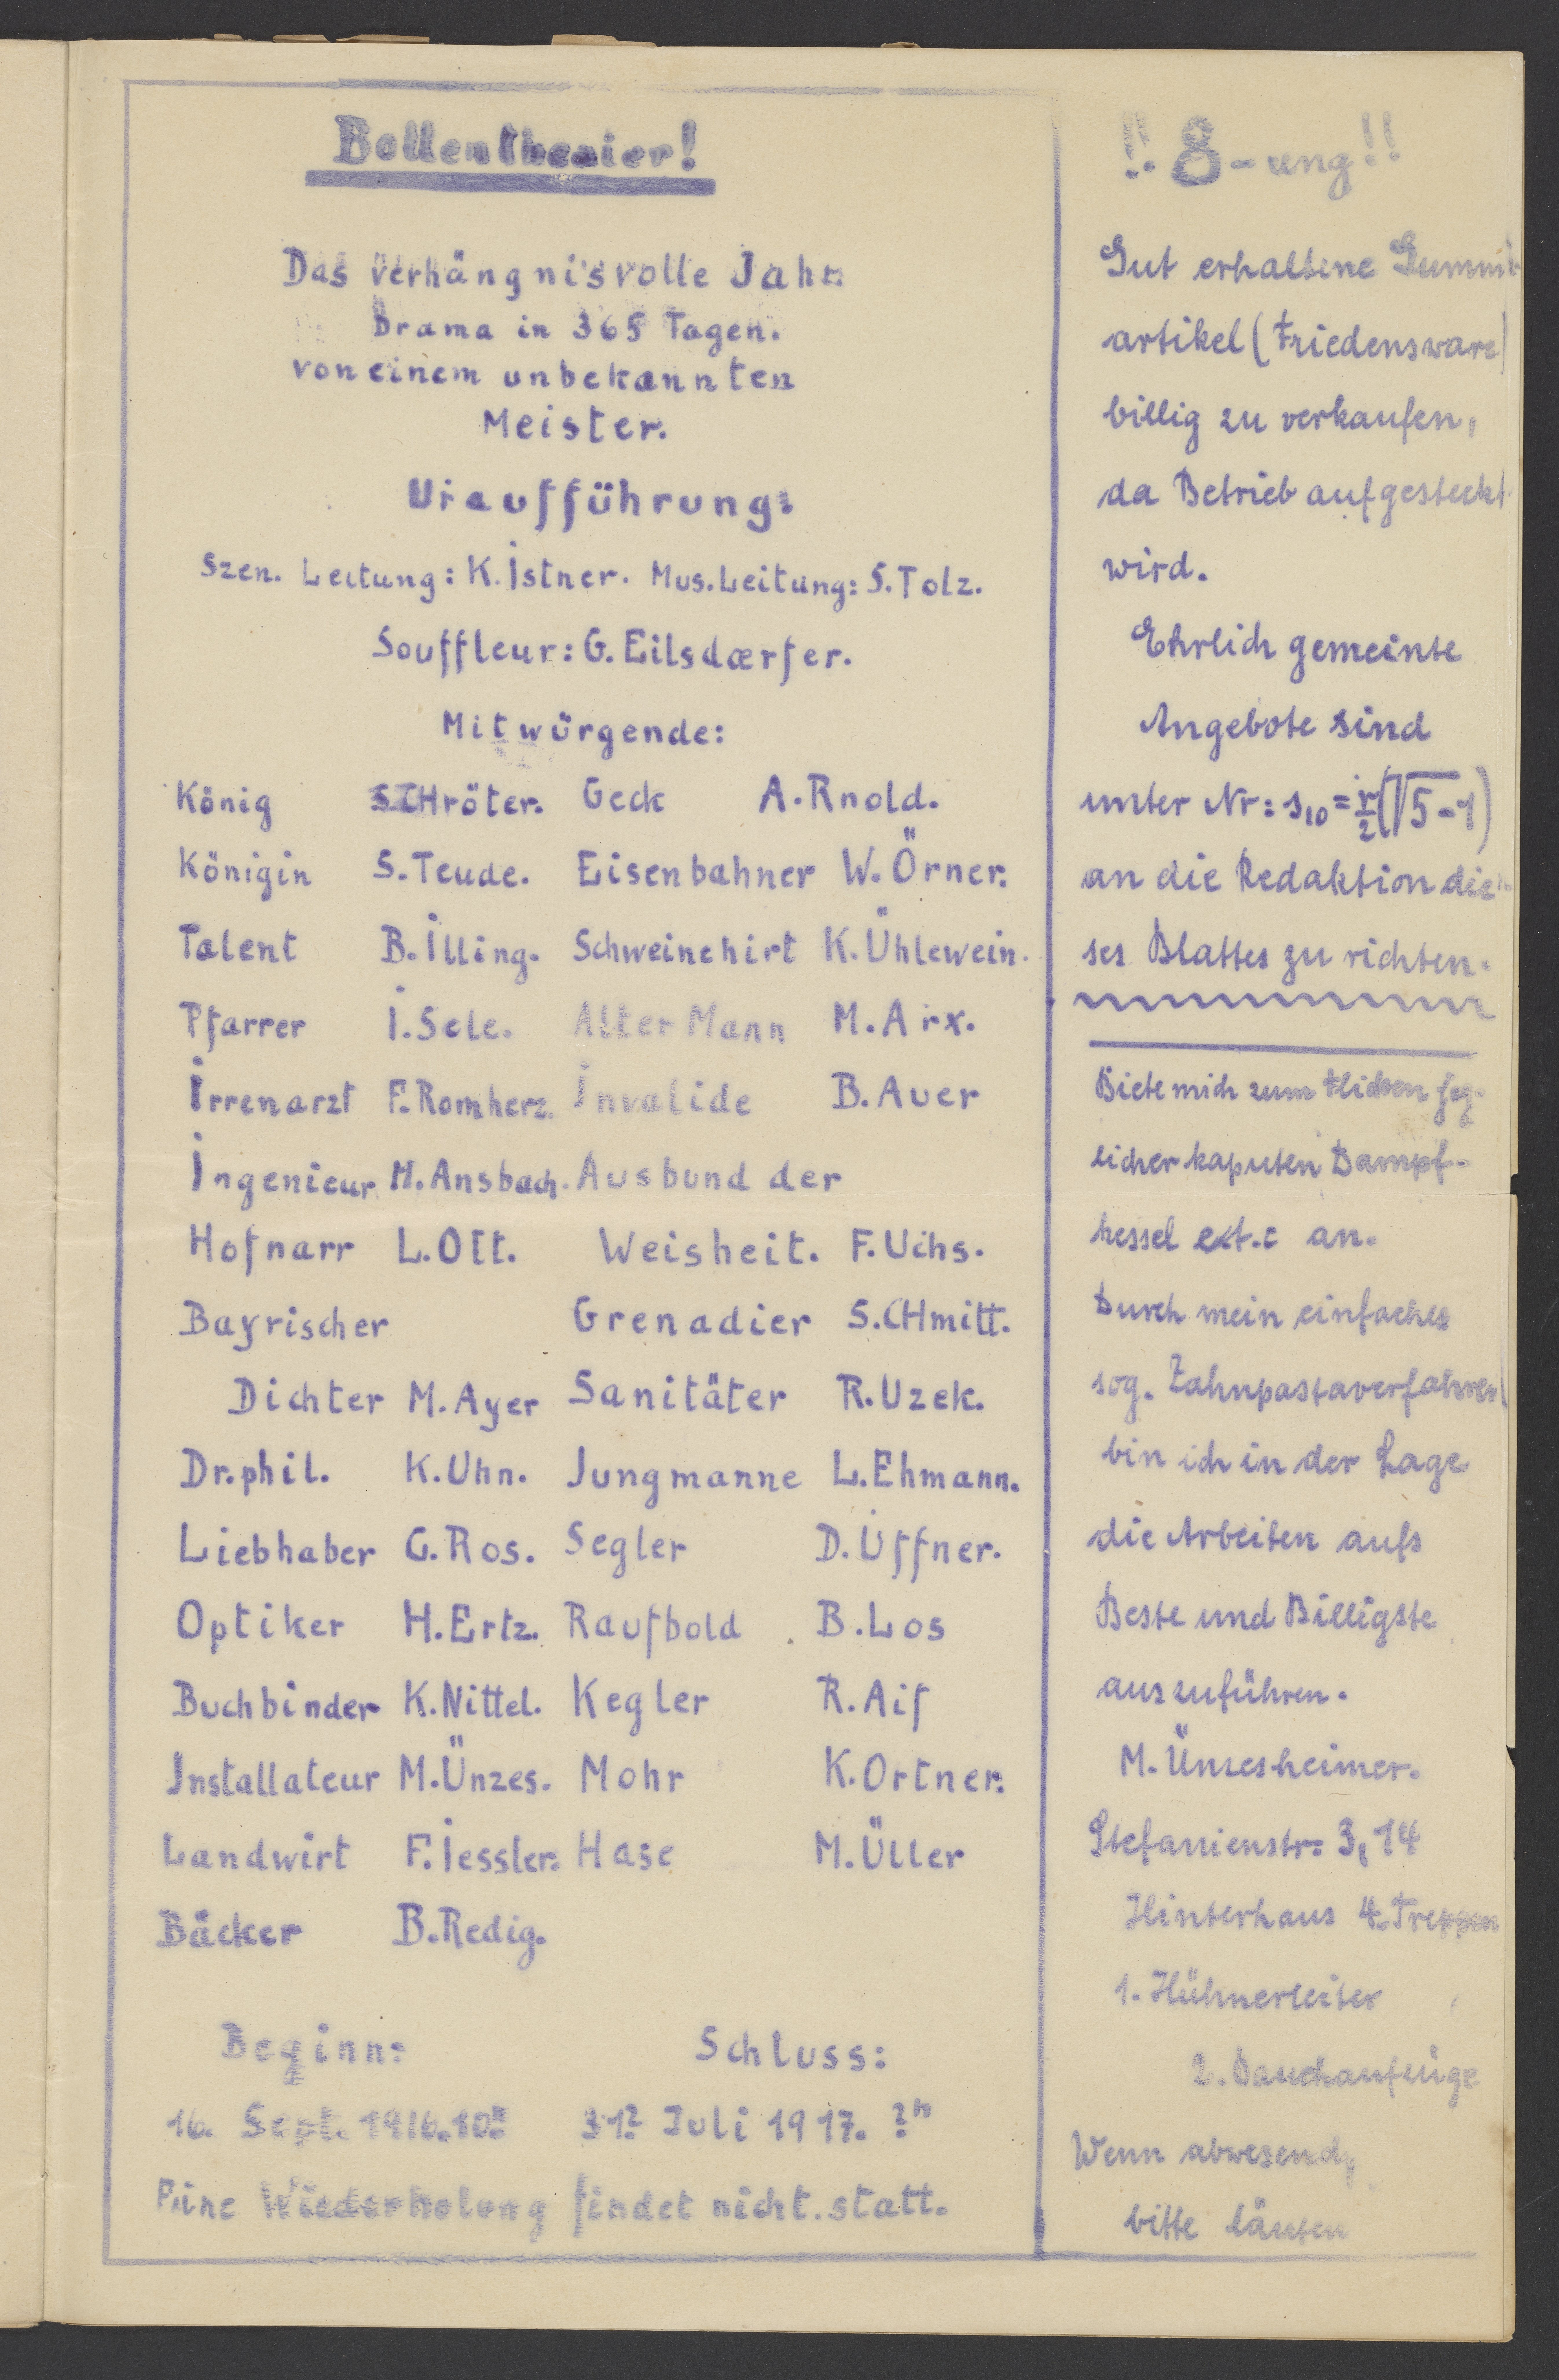 Bollentheater!
Das verhängnisvolle Jahr.
Drama in 365 Tagen.
von einem unbekannten
Meister.
Uraufführung:
Szen. Leitung: K. Istner. Mus. Leitung: S. Tolz.
Souffleur: G. Eilsdœrfer.
Mitwürgende:
König S.CHröter. Geck A. Rnold.
Königin S. Teude. Eisenbahner W. Örner.
Talent B. Illing. Schweinehirt K. Ühlewein.
Pfarrer I. Sele. Alter Mann M. Arx.
Irrenarzt F. Romherz. Invalide B. Auer
Ingenieur M. Ansbach. Ausbund der
Hofnarr L. Ott. Weisheit. F. Uchs.
Bayrischer Grenadier S.CHmitt.
Dichter M. Ayer Sanitäter R. Uzek.
Dr. phil. K. Uhn. Jungmanne L. Ehmann.
Liebhaber G. Ros. Segler D. Üffner.
Optiker H. Ertz. Raufbold B. Los
Buchbinder K. Nittel. Kegler R. Aif
Installateur M. Ünzes. Mohr K. Ortner.
Landwirt F. Iessler. Hase M. Üller
Bäcker B. Redig.
Beginn: Schluss:
16. Sept. 1916. 10 31? Juli 1917. ?
Eine Wiederholung findet nicht statt.
!! 8-ung!!
Gut erhaltene Gummi
artikel (Friedensware)
billig zu verkaufen,
da Betrieb aufgesteckt
wird.
Ehrlich gemeinte
Angebote sind
unter Nr: s₁₀ = r/2(√5-1)
an die Redaktion die
ses Blattes zu richten.
Biete mich zum Flicken jeg-
licher kaputen Dampf-
kessel ext.c an.
Durch mein einfaches
sog. Zahnpastaverfahren
bin ich in der Lage
die Arbeiten aufs
Beste und Billigste
auszuführen.
M. Ünzesheimer.
Stefanienstr: 3,14
Hinterhaus 4. Treppen
1. Hühnerleiter
2. Bauchaufzüge
Wenn abwesend,
bitte läuten